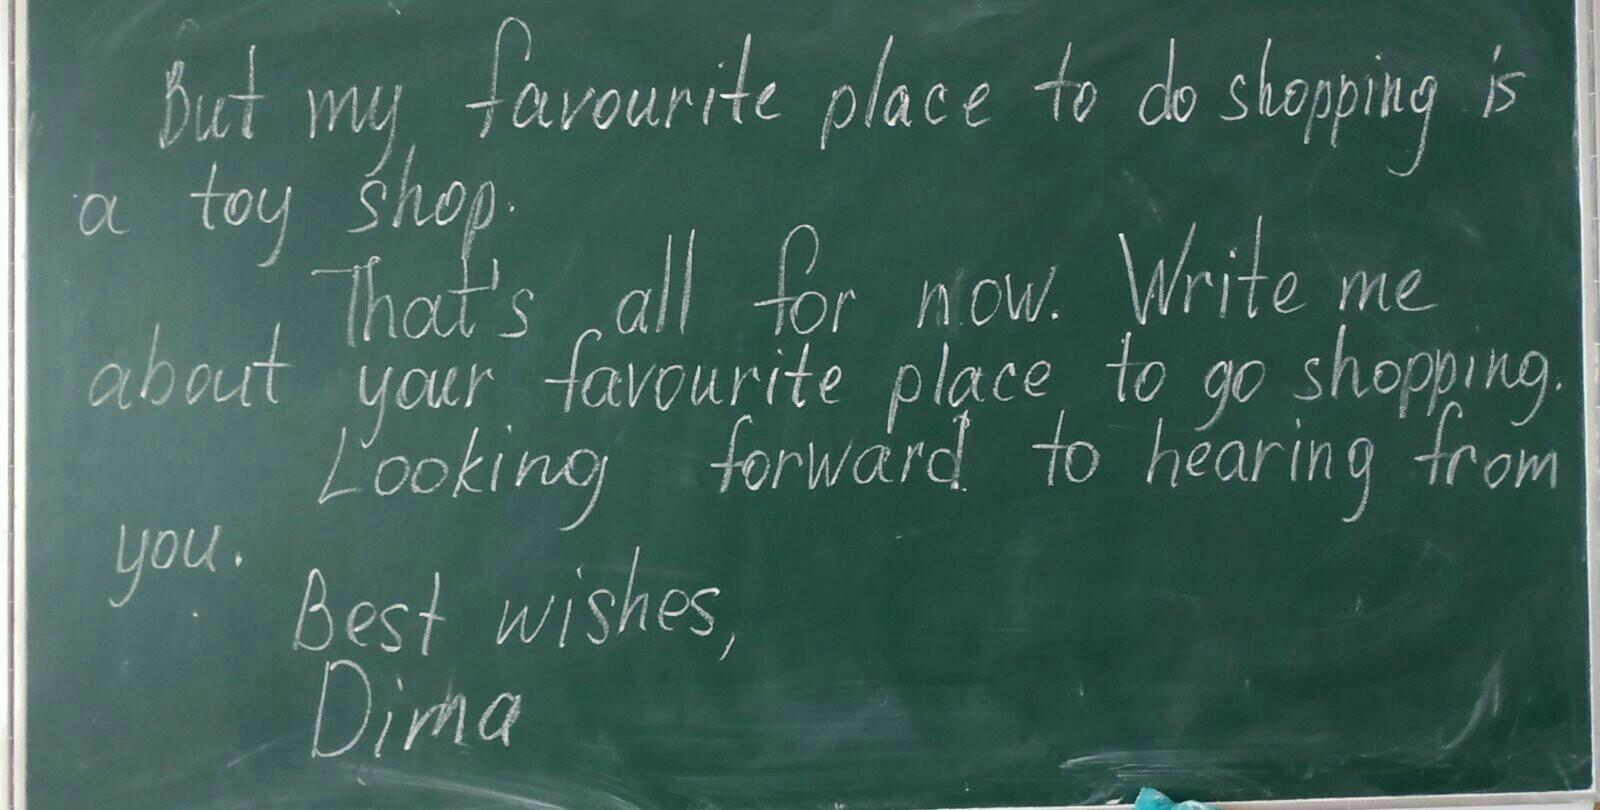 But my favourite place to do shopping is
a toy shop.
That's all for now. Write me
about your favourite place to go shopping.
Looking forward to hearing from
you.
Best wishes,
Dima